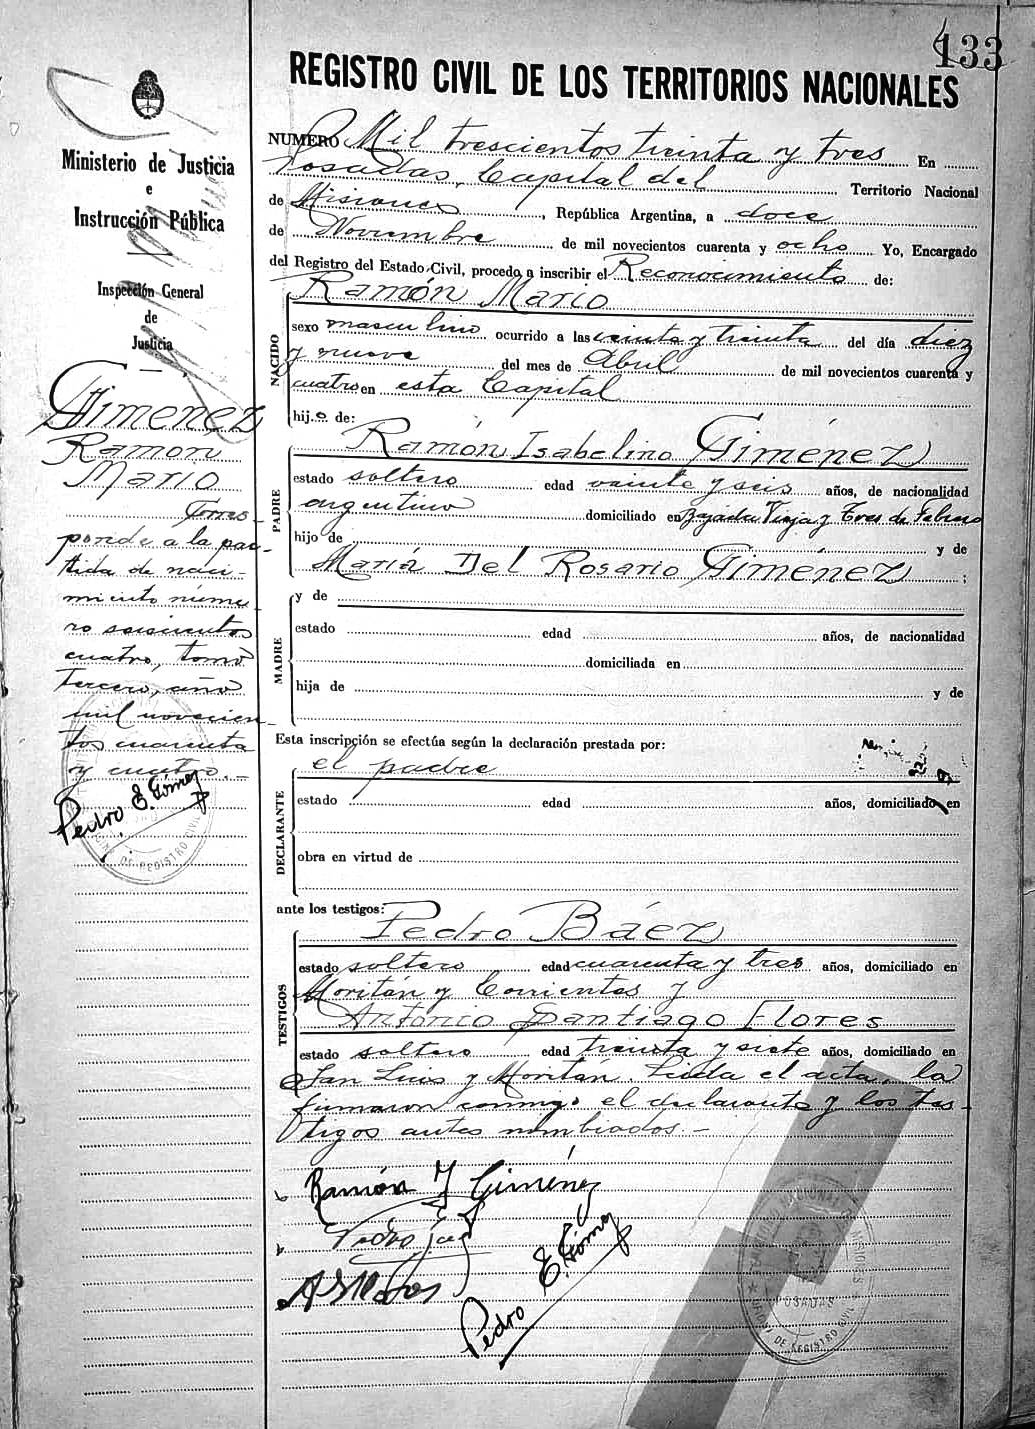 133
REGISTRO CIVIL DE LOS TERRITORIOS NACIONALES
Ministerio de Justicia
e
Instrucción Pública
Inspección General
de
Justicia
Giménez
Ramon
Mario
Corres-
ponde a la par-
tida de naci-
miento núme-
ro seiscientos
cuatro, tomo
Tercero, año
mil novecien-
tos cuarenta
y cuatro.-
Pedro E. Gómez
NUMERO Mil trescientos treinta y tres En
Posadas, Capital del Territorio Nacional
de Misiones, República Argentina, a doce
de Noviembre de mil novecientos cuarenta y ocho Yo, Encargado
del Registro del Estado Civil, procedo a inscribir el Reconocimiento de:
NACIDO
Ramón Mario
sexo masculino ocurrido a las veinte y treinta del día diez
y nueve del mes de Abril de mil novecientos cuarenta y
cuatro en esta Capital
hijo de:
PADRE
Ramón Isabelino Giménez
estado soltero edad veinte y seis años, de nacionalidad
argentino domiciliado en Bajada Vieja y Tres de Febrero
hijo de y de
María Del Rosario Giménez ;
MADRE
y de
estado edad años, de nacionalidad
domiciliada en
hija de y de
Esta inscripción se efectúa según la declaración prestada por:
DECLARANTE
el padre
estado edad años, domiciliado en
obra en virtud de
ante los testigos:
TESTIGOS
Pedro Báez
estado soltero edad cuarenta y tres años, domiciliado en
Moritán y Corrientes y
Antonio Santiago Flores
estado soltero edad treinta y siete años, domiciliado en
San Luis y Moritán. Leída el acta, la
firmaron conmigo el declarante y los tes-
tigos antes nombrados.-
Ramón I Giménez
Pedro E. Gómez
POSADAS